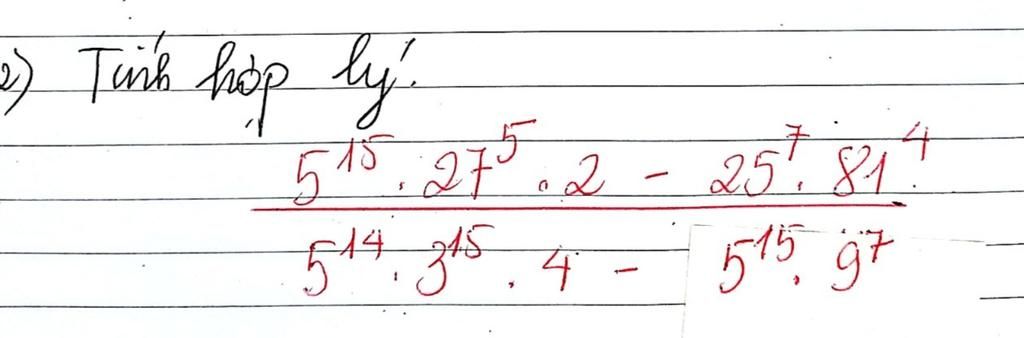 2) Tính hợp lý.
5^15 . 27^5 . 2 - 25^7 . 81^4
5^14 . 3^15 . 4 - 5^15 . 9^7